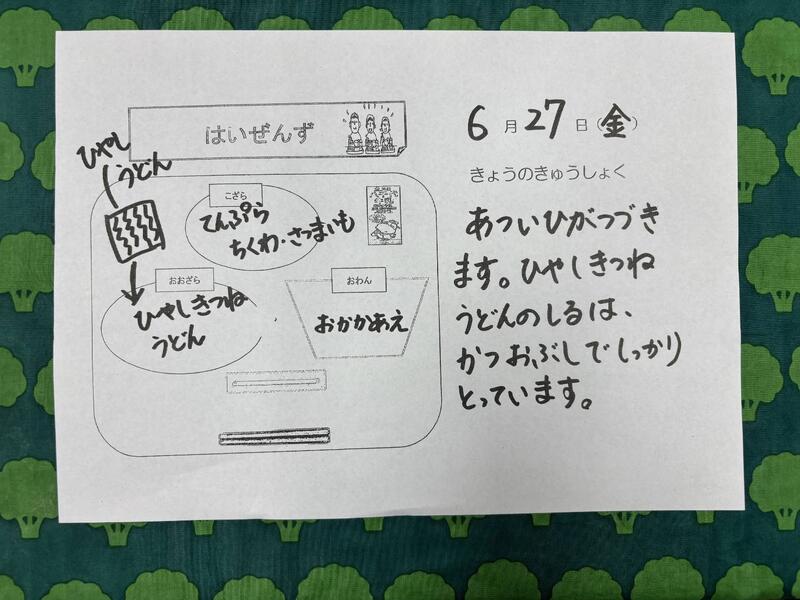 はいぜんず
ひやし
うどん
こざら
てんぷら
ちくわ・さつまいも
おおざら
ひやしきつね
うどん
おわん
おかかあえ
6月27日(金)
きょうのきゅうしょく
あついひがつづき
ます。ひやしきつね
うどんのしるは、
かつおぶしでしっかり
とっています。